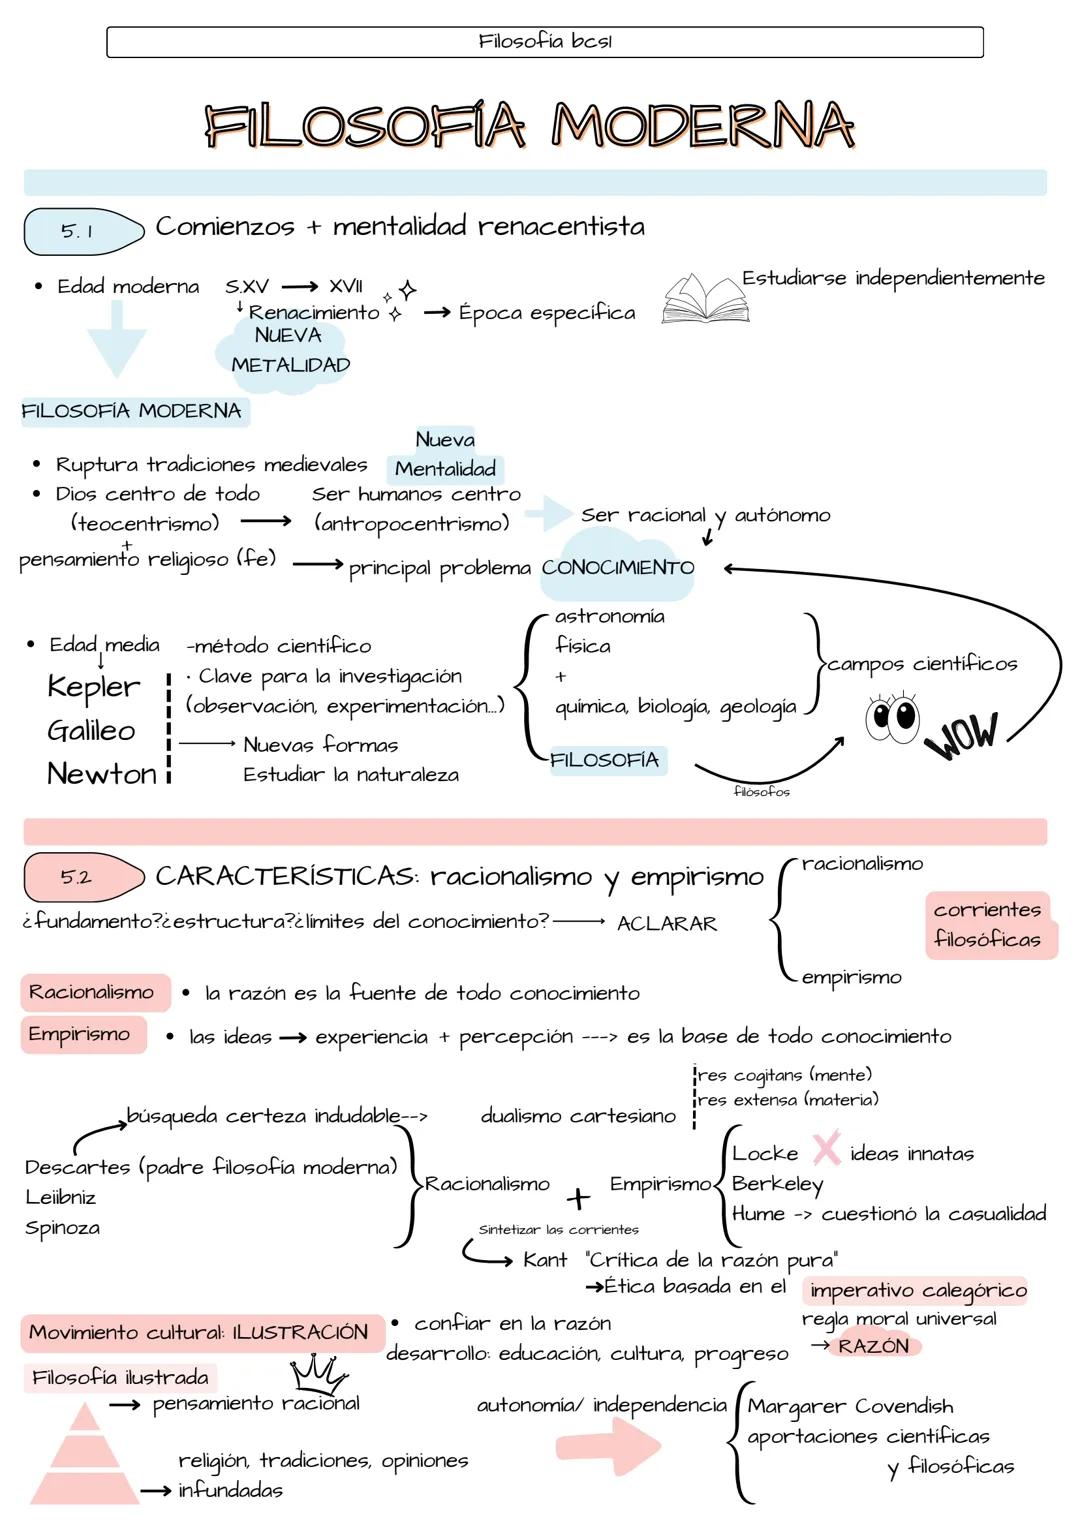 Filosofía bcs1
FILOSOFÍA MODERNA
5.1 Comienzos + mentalidad renacentista
• Edad moderna S.XV → XVII
↓ Renacimiento → Época específica
Estudiarse independientemente
NUEVA
METALIDAD
FILOSOFÍA MODERNA
Nueva
Mentalidad
• Ruptura tradiciones medievales
• Dios centro de todo
(teocentrismo) →
Ser humanos centro
(antropocentrismo)
Ser racional y autónomo
+
pensamiento religioso (fe) → principal problema CONOCIMIENTO
• Edad media
Kepler
Galileo
Newton
-método científico
· Clave para la investigación
(observación, experimentación...)
→ Nuevas formas
Estudiar la naturaleza
astronomía
física
+
química, biología, geología
campos científicos
FILOSOFÍA
filósofos
WOW
5.2 CARACTERÍSTICAS: racionalismo y empirismo
racionalismo
empirismo
corrientes
filosóficas
¿fundamento?¿estructura?¿límites del conocimiento? → ACLARAR
Racionalismo • la razón es la fuente de todo conocimiento
Empirismo • las ideas → experiencia + percepción ---> es la base de todo conocimiento
búsqueda certeza indudable--> dualismo cartesiano
res cogitans (mente)
res extensa (materia)
Descartes (padre filosofía moderna)
Leiibniz
Spinoza
Racionalismo + Empirismo
Locke X ideas innatas
Berkeley
Hume -> cuestionó la casualidad
Sintetizar las corrientes
Kant "Crítica de la razón pura"
→Ética basada en el imperativo calegórico
regla moral universal
→ RAZÓN
Movimiento cultural: ILUSTRACIÓN • confiar en la razón
desarrollo: educación, cultura, progreso
Filosofía ilustrada
→ pensamiento racional
religión, tradiciones, opiniones
→ infundadas
autonomía/ independencia
Margarer Covendish
aportaciones científicas
y filosóficas